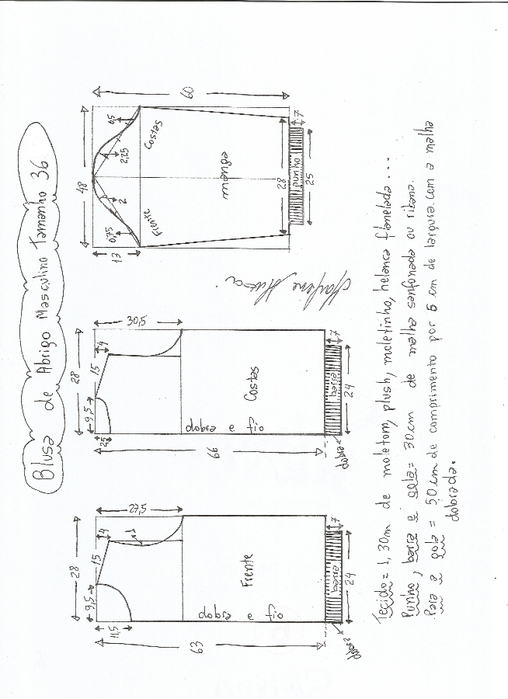 Blusa de Abrigo Masculino Tamanho 36
28
9,5
15
4
27,5
1
11,5
Frente
dobra e fio
63
barra
7
24
dobra
28
9,5
15
4
30,5
2,5
Costas
dobra e fio
66
barra
7
24
dobra
48
13
0,75
2
2,25
Frente
Costas
manga
60
28
punho
7
25
Tecido = 1,30m de moletom, plush, moletinho, helanca flanelada ....
Punho, barra e gola = 30cm de malha sanfonada ou ribana.
Para a gola = 50cm de comprimento por 5 cm de largura com a malha
dobrada.